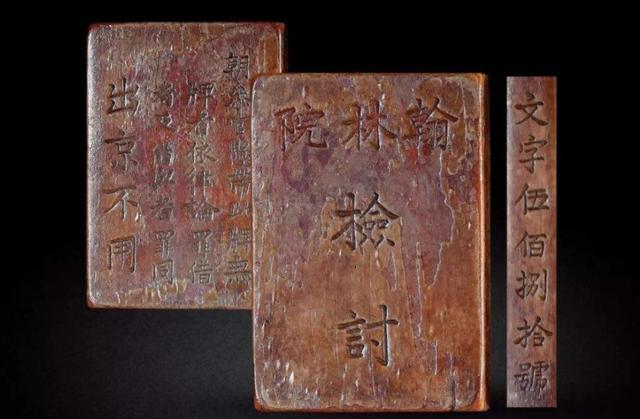 朝參官懸帶此牌無
牌者依律論罪借
者及借與者罪同
出京不用
翰林院
檢討
文字伍佰捌拾號